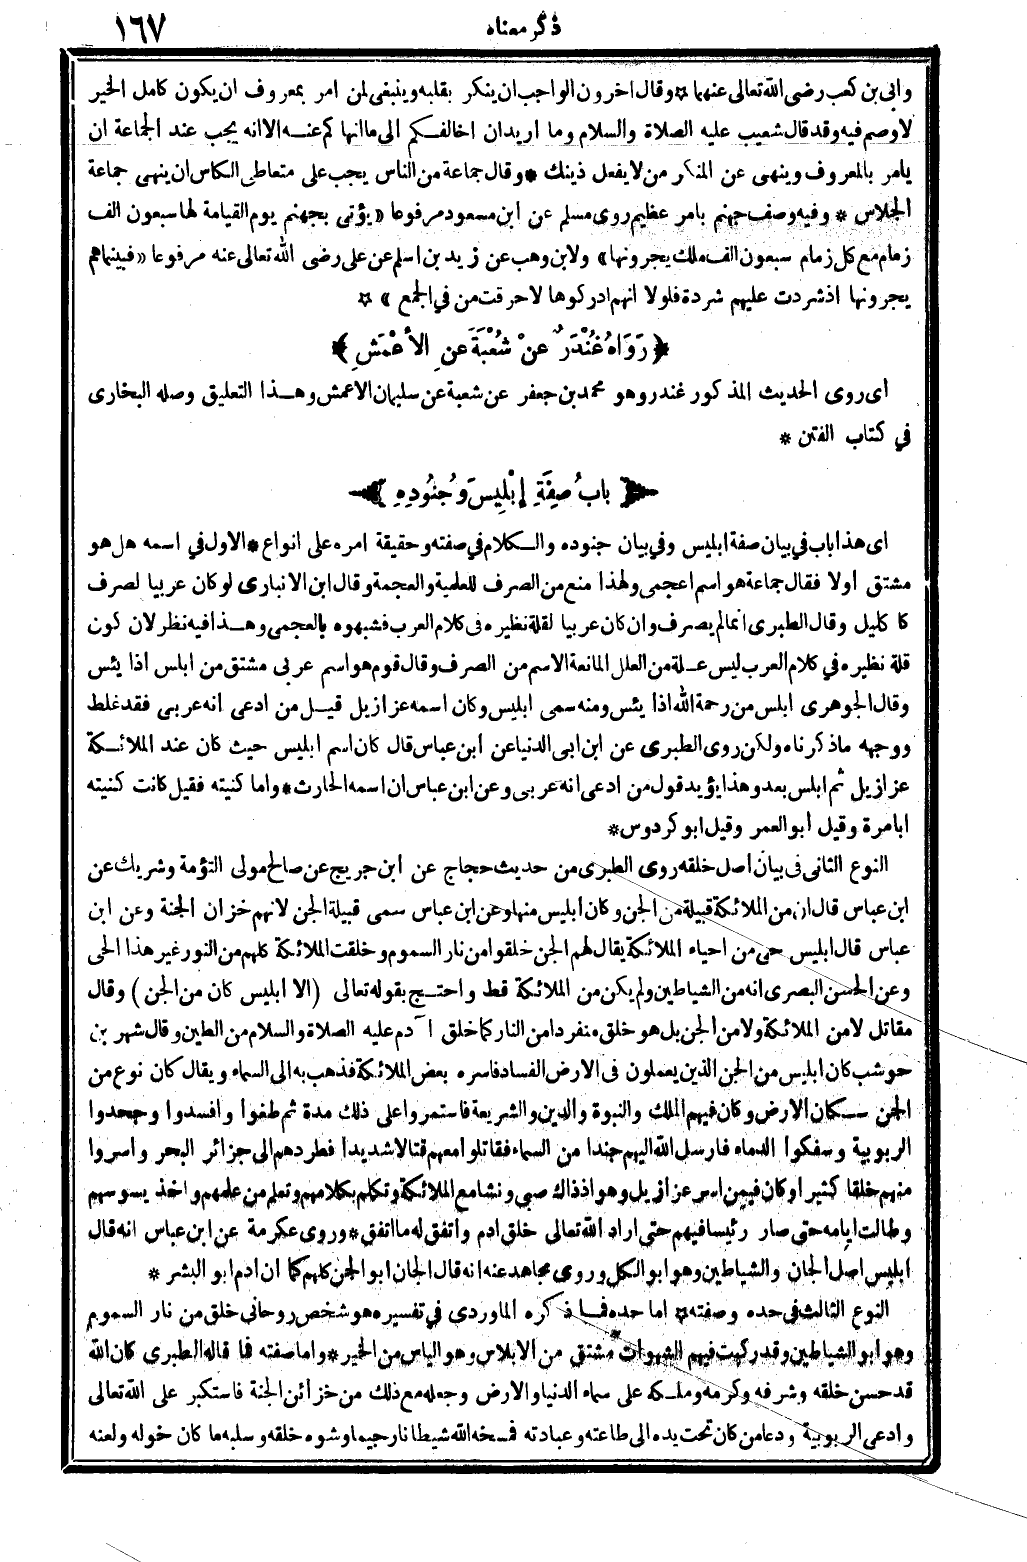 ذكر معناه
١٦٧
وابى بن كعب رضى الله تعالى عنهما * وقال اخرون الواجب ان ينكر بقلبه وينبغى لمن امر بمعروف ان يكون كامل الخير
لا وصم فيه وقد قال شعيب عليه الصلاة والسلام وما اريد ان اخالفكم الى ما انها كم عنه الا انه يجب عند الجماعة ان
يامر بالمعروف وينهى عن المنكر من لا يفعل ذينك * وقال جماعة من الناس يجب على متعاطى الكاس ان ينهى جماعة
الجلاس * وفيه وصف جهنم بامر عظيم روى مسلم عن ابن مسعود مرفوعا «يؤتى بجهنم يوم القيامة لها سبعون الف
زمام مع كل زمام سبعون الف ملك يجرونها» ولابن وهب عن زيد بن اسلم عن على رضى الله تعالى عنه مرفوعا «فبينما هم
يجرونها اذ شردت عليهم شردة فلولا انهم ادركوها لاحرقت من في الجمع» *
﴿رَوَاهُ غُنْدَرٌ عنْ شُعْبَةَ عنِ الأعْمَشِ﴾
اى روى الحديث المذكور غندر وهو محمد بن جعفر عن شعبة عن سليمان الاعمش وهذا التعليق وصله البخارى
في كتاب الفتن *
﴿بابُ صِفَةِ إبْلِيسَ وجُنُودِهِ﴾
اى هذا باب في بيان صفة ابليس وفي بيان جنوده والكلام في صفته وحقيقة امره على انواع * الاول في اسمه هل هو
مشتق اولا فقال جماعة هو اسم اعجمى ولهذا منع من الصرف للعلمية والعجمة وقال ابن الانبارى لو كان عربيا لصرف
كا كليل وقال الطبرى انما لم يصرف وان كان عربيا لقلة نظيره فى كلام العرب فشبهوه بالعجمى وهذا فيه نظر لان كون
قلة نظيره في كلام العرب ليس علة من العلل المانعة الاسم من الصرف وقال قوم هو اسم عربى مشتق من ابلس اذا يئس
وقال الجوهرى ابلس من رحمة الله اذا يئس ومنه سمى ابليس وكان اسمه عزازيل قيل من ادعى انه عربى فقد غلط
ووجهه ماذكرناه ولكن روى الطبرى عن ابن ابى الدنيا عن ابن عباس قال كان اسم ابليس حيث كان عند الملائكة
عزازيل ثم ابلس بعد وهذا يؤيد قول من ادعى انه عربى وعن ابن عباس ان اسمه الحارث * واما كنيته فقيل كانت كنيته
ابا مرة وقيل أبو العمر وقيل ابو كردوس *
النوع الثانى فى بيان أصل خلقه روى الطبرى من حديث حجاج عن ابن جريج عن صالح مولى التؤمة وشريك عن
ابن عباس قال ان من الملائكة قبيلة من الجن وكان ابليس منها وعن ابن عباس سمى قبيلة الجن لانهم خزان الجنة وعن ابن
عباس قال ابليس حى من احياء الملائكة يقال لهم الجن خلقوا من نار السموم وخلقت الملائكة كلهم من النور غير هذا الحى
وعن الحسن البصرى انه من الشياطين ولم يكن من الملائكة قط واحتج بقوله تعالى (الا ابليس كان من الجن) وقال
مقاتل لا من الملائكة ولا من الجن بل هو خلق منفردا من النار كما خلق آدم عليه الصلاة والسلام من الطين وقال شهر بن
حوشب كان ابليس من الجن الذين يعملون فى الارض الفساد فاسره بعض الملائكة فذهب به الى السماء ويقال كان نوع من
الجن سكان الارض وكان فيهم الملك والنبوة والدين والشريعة فاستمروا على ذلك مدة ثم طغوا وافسدوا وجحدوا
الربوبية وسفكوا الدماء فارسل الله اليهم جندا من السماء فقاتلوا معهم قتالا شديدا فطردهم الى جزائر البحر واسروا
منهم خلقا كثيرا وكان فيمن اسر عزازيل وهو اذ ذاك صبى ونشا مع الملائكة وتكلم بكلامهم وتعلم من علمهم واخذ يسوسهم
وطالت ايامه حتى صار رئيسا فيهم حتى اراد الله تعالى خلق ادم واتفق له ما اتفق * وروى عكرمة عن ابن عباس انه قال
ابليس اصل الجان والشياطين وهو ابو الكل وروى مجاهد عنه انه قال الجان ابو الجن كلهم كما ان ادم ابو البشر *
النوع الثالث فى حده وصفته * اما حده فما ذكره الماوردى في تفسيره هو شخص روحانى خلق من نار السموم
وهو ابو الشياطين وقد ركبت فيهم الشهوات مشتق من الابلاس وهو الياس من الخير * واما صفته فما قاله الطبرى كان الله
قد حسن خلقه وشرفه وكرمه وملكه على سماء الدنيا والارض وجعله مع ذلك من خزائن الجنة فاستكبر على الله تعالى
وادعى الربوبية ودعا من كان تحت يده الى طاعته وعبادته فمسخه الله شيطانا رجيما وشوه خلقه وسلبه ما كان خوله ولعنه